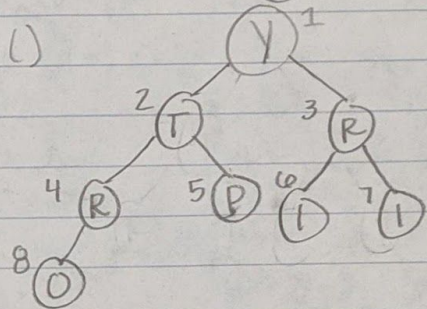 () Y 1
2 T 3 R
4 R 5 P 6 I 7 I
8 O